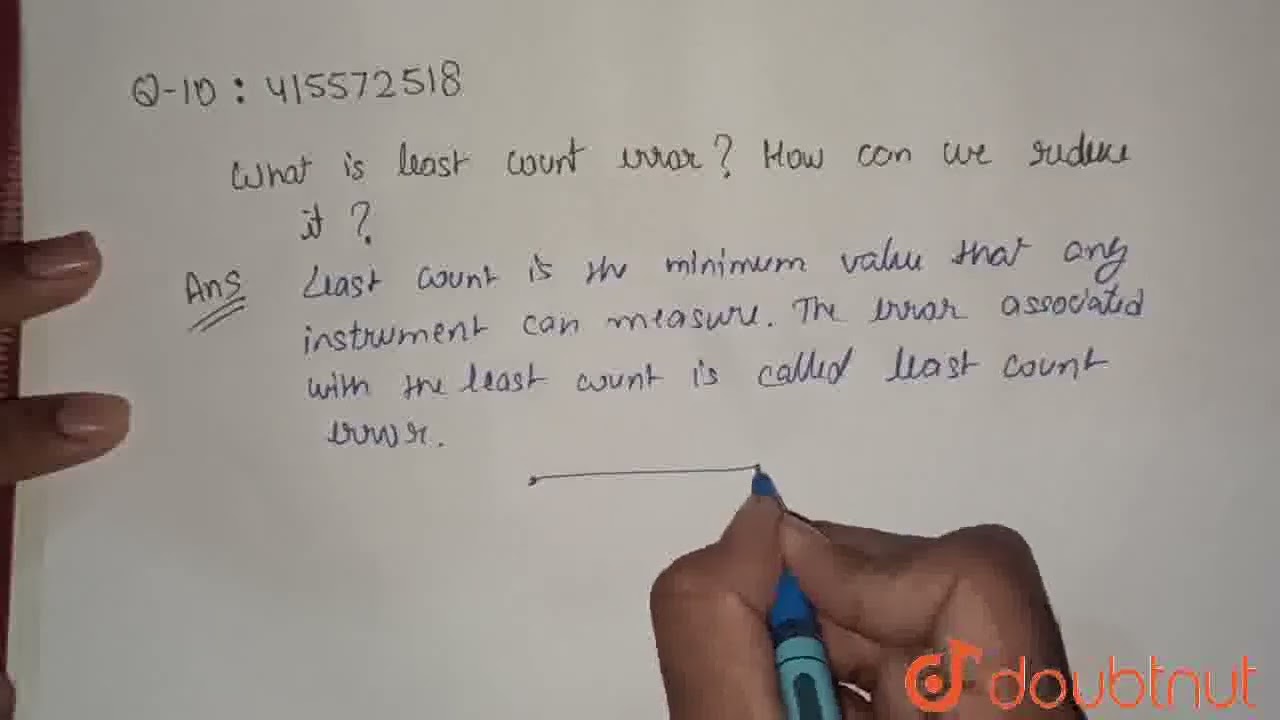 Q-10 : 415572518
What is least count error? How can we reduce
it ?
Ans Least count is the minimum value that any
instrument can measure. The error associated
with the least count is called least count
error.
doubtnut